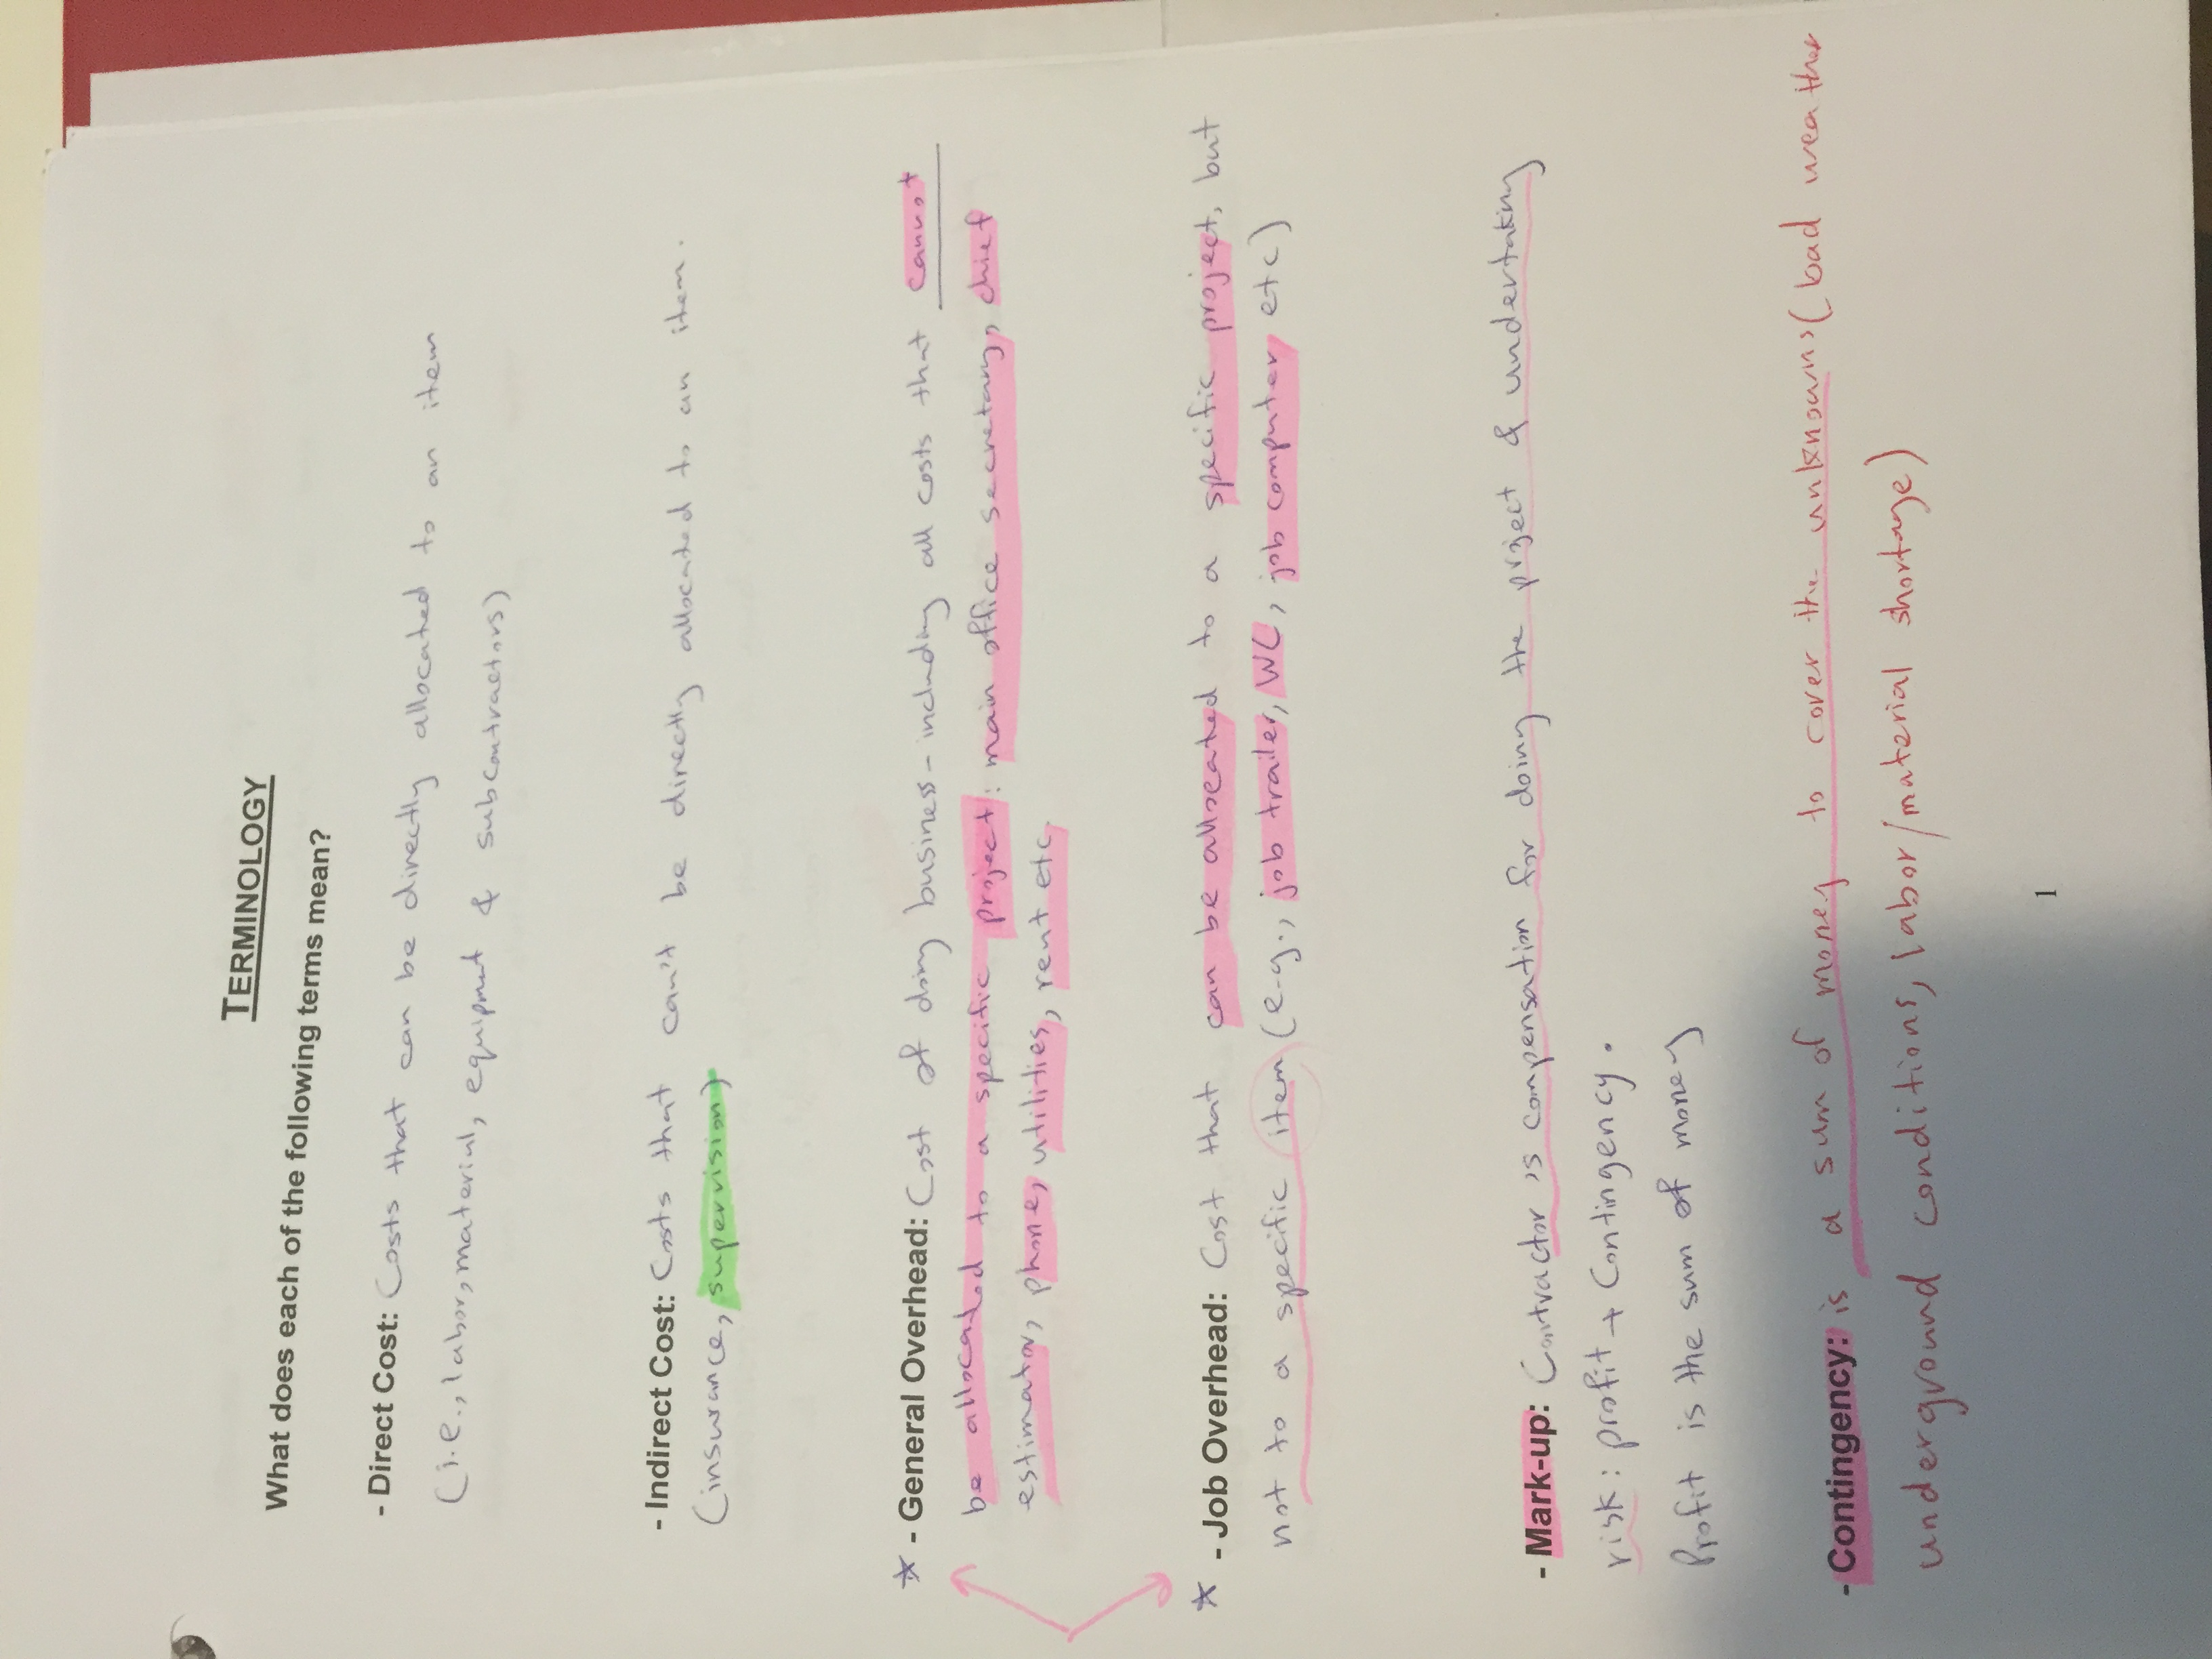 TERMINOLOGY
What does each of the following terms mean?
- Direct Cost: Costs that can be directly allocated to an item
(i.e., labor, material, equipment & subcontractors)
- Indirect Cost: Costs that can't be directly allocated to an item.
(insurance, supervision)
* - General Overhead: Cost of doing business - including all costs that cannot
be allocated to a specific project: main office secretary, chief
estimator, phone, utilities, rent etc.
* - Job Overhead: Cost that can be allocated to a specific project, but
not to a specific item (e.g., job trailer, WC, job computer etc)
- Mark-up: Contractor's compensation for doing the project & undertaking
risk: profit + Contingency.
Profit is the sum of money
- Contingency: is a sum of money to cover the unknowns (bad weather
underground conditions, labor/material shortage)
1